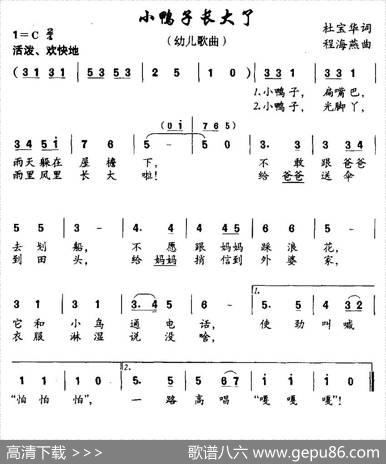 小鸭子长大了
1=C 2/4
（幼儿歌曲）
杜宝华词
活泼、欢快地
程海燕曲
(31 31 | 5353 | 25 | 50) | 331 | 331 |
1.小鸭子， 扁嘴巴，
2.小鸭子， 光脚丫，
(0i 765)
345i | 7 6 | 5 - | 5 0 | 3 · 3 | 3 3 1 |
雨天躲在屋檐下， 不敢跟爸爸
雨里风里长大啦！ 给爸爸送伞
5 5 | 3 - | 4. 4 | 4 45 | 2 4 | 3 - |
去划船， 不愿跟妈妈踩浪花，
到田头， 给妈妈捎信到外婆家，
3 1 | 3 1 | 3. 4 | 6 - | 5. 5 | 4 32 |
它和小鸟通电话， 使劲叫喊
衣服淋湿说没啥，
1.
1 1 | 1 0 | 3. 1 | 5 67 | i i | i 0 |
2.
“怕怕怕”， 一路高唱“嘎嘎嘎”！
高清下载 >>>
歌谱八六 www.gepu86.com